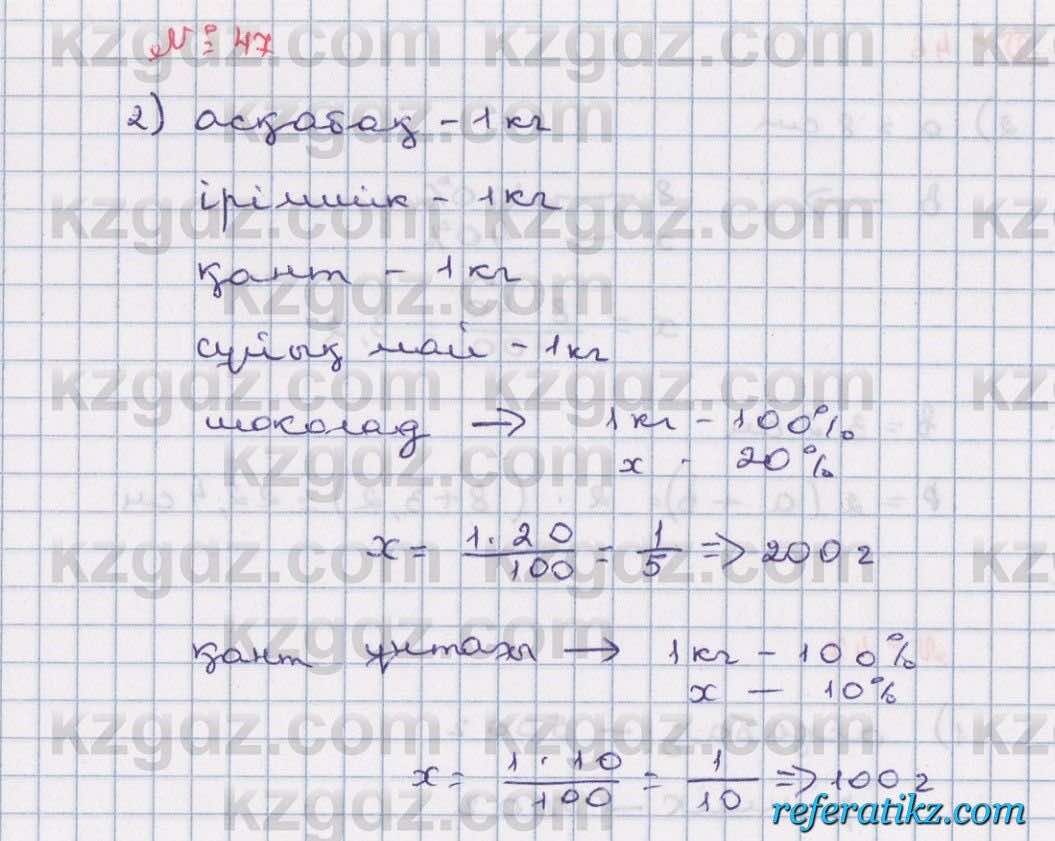 № 47
2) асқабақ - 1 кг
ірімшік - 1 кг
қант - 1 кг
сұйық май - 1 кг
шоколад → 1 кг - 100%
x - 20%
x = 1 · 20 / 100 = 1/5 => 200 г
қант ұнтағы → 1 кг - 100%
x — 10%
x = 1 · 10 / 100 = 1/10 => 100 г
referatikz.com
kzgdz.com